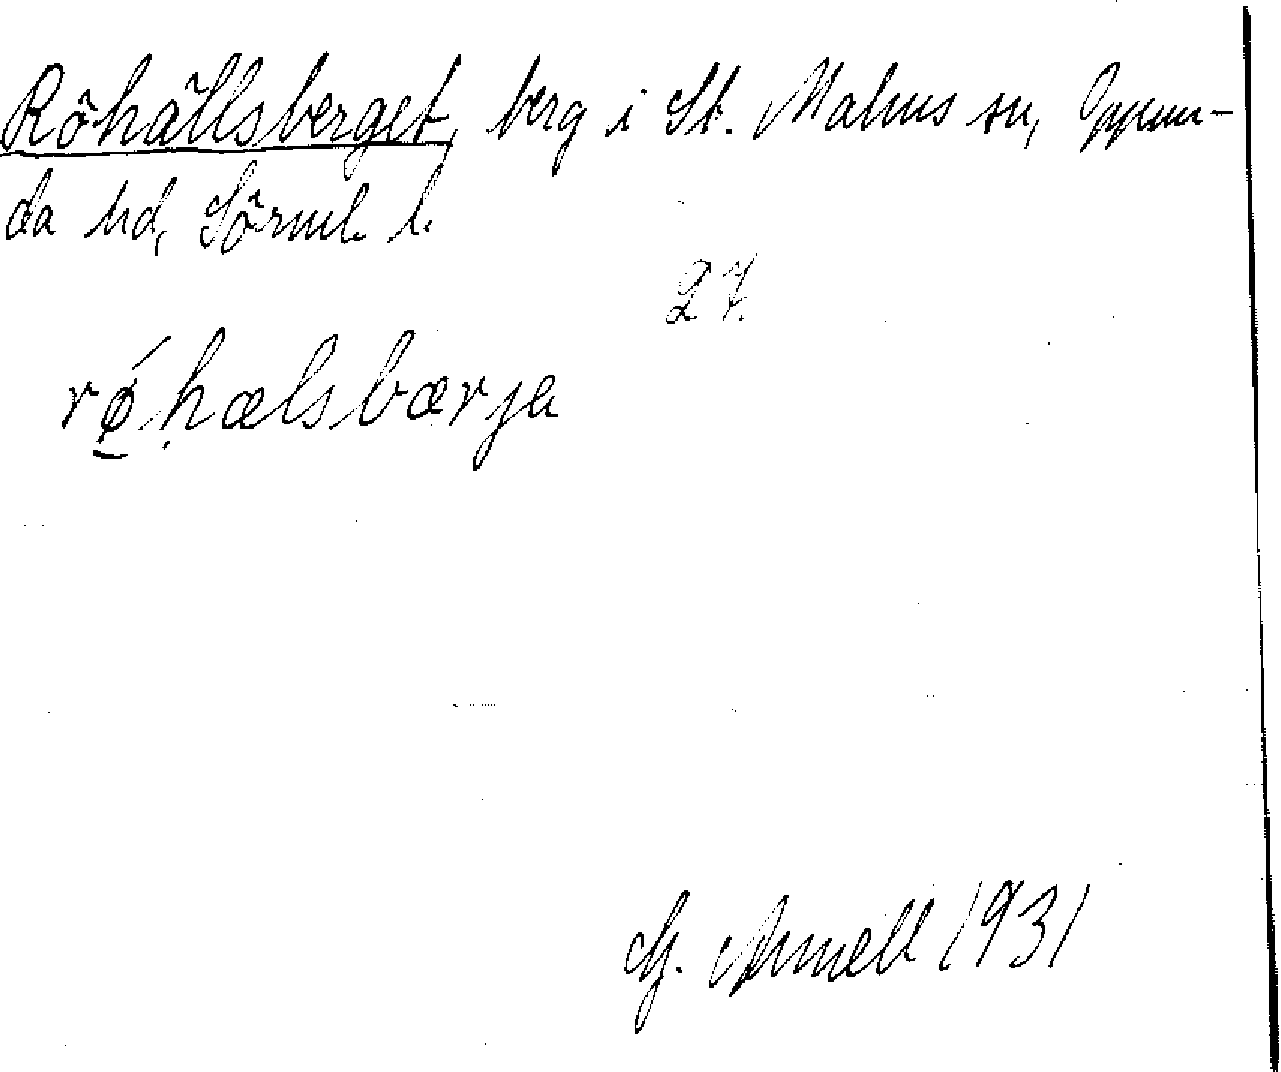 Röhällsberget, berg i St. Malms sn, Oppun-
da hd, Sörml. l.
27.
rǿ̱hælsbærja
G. Arnell 1931